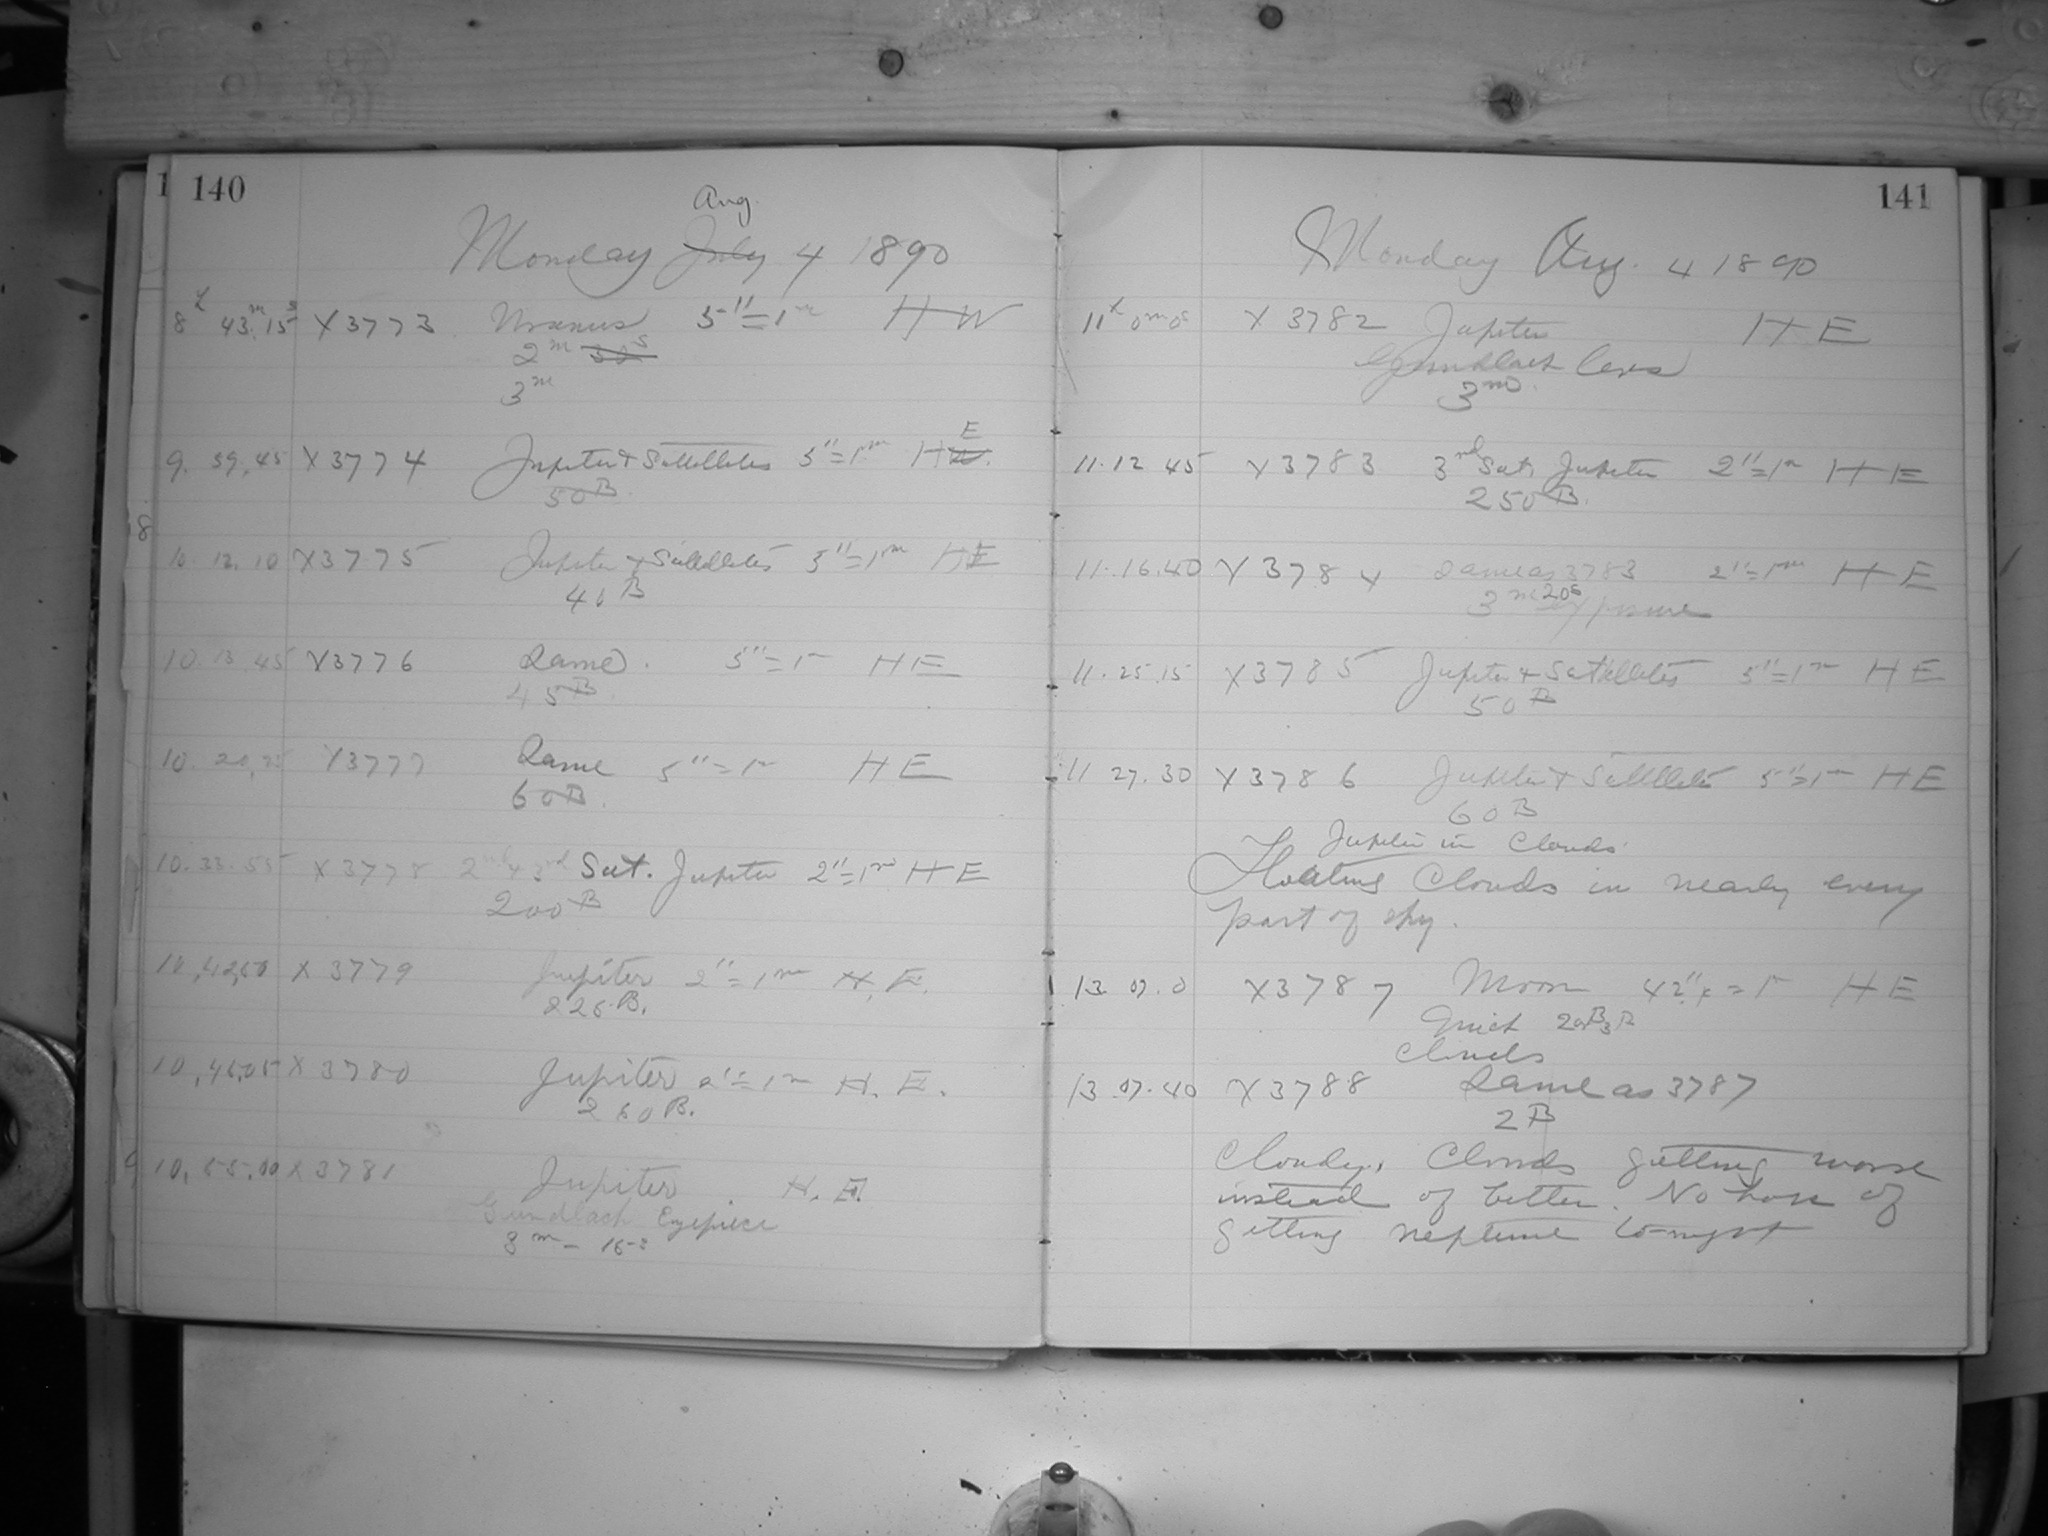 1 140
Aug.
Monday July 4 1890
8h 43m 15s X3773 Uranus 5"=1m HW
2m 30s
3m
9. 59.45 X3774 Jupiter & Satellites 5"=1m HW. E
50B.
8
10. 12. 10 X3775 Jupiter & Satellites 5"=1m HE
40B
10. 13. 45 X3776 Same. 5"=1m HE
45B.
10. 20. X3777 Same 5"=1m HE
60B.
10. 33. 55 X3778 2nd & 3rd Sat. Jupiter 2"=1m HE
200B
10, 42, 50 X 3779 Jupiter 2"=1m H. E.
225 B.
10, 46, 05 X 3780 Jupiter 2"=1m H. E.
250 B.
10, 55, 00 X 3781 Jupiter H. E.
Gundlach Eyepiece
3m - 15s
141
Monday Aug. 4 1890
11h 0m 0s X 3782 Jupiter HE
Gundlach lens
3m.
11. 12 45 X3783 3rd Sat. Jupiter 2"=1m HE
250B.
11. 16. 40 X 3784 Same as 3783 2"=1m HE
3m 20s exposure
11. 25. 15 X3785 Jupiter & Satellites 5"=1m HE
50B
11 27. 30 X3786 Jupiter & Satellites 5"=1m HE
60B
Jupiter in Clouds
Floating Clouds in nearly every
part of sky.
13. 07. 0 X3787 Moon HE
20B
Clouds
13. 07. 40 X3788 Same as 3787
2B
Cloudy. Clouds getting worse
instead of better. No hope of
getting neptune to-night